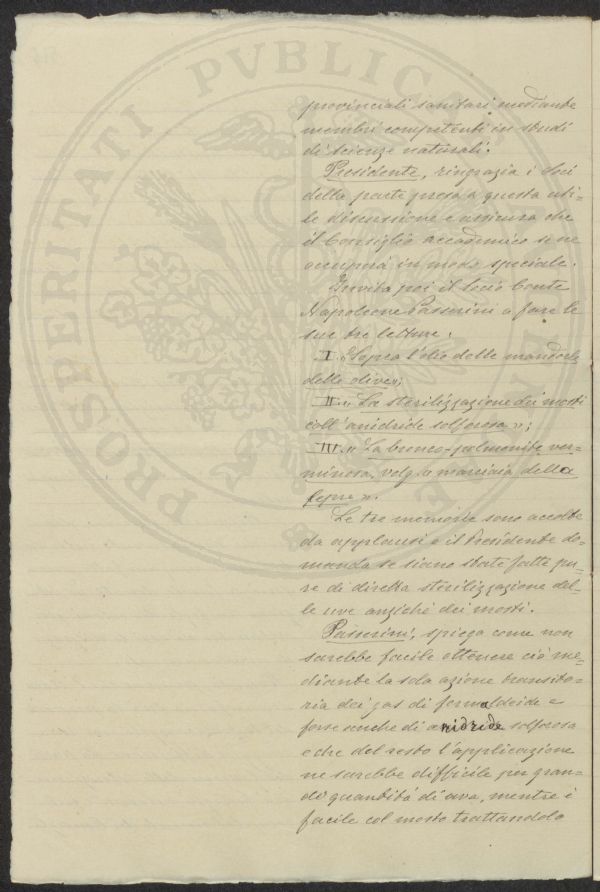 provinciali sanitari mediante
membri competenti in studi
di scienze naturali.
Presidente, ringrazia i soci
della parte presa a questa uti=
le discussione e assicura che
il Consiglio accademico se ne
occuperà in modo speciale.
Invita poi il socio Conte
Napoleone Passerini a fare le
sue tre letture:
I. "Sopra l'olio delle mandorle
delle olive";
II. "La sterilizzazione dei mosti
coll'anidride solforosa";
III. "La bronco-pulmonite ver=
minosa, volg.e marciaia della
lepre".
Le tre memorie sono accolte
da applausi e il Presidente do=
manda se siano state fatte pro=
ve di diretta sterilizzazione del=
le uve anziché dei mosti.
Passerini, spiega come non
sarebbe facile ottenere ciò me=
diante la sola azione transito=
ria dei gas di formaldeide e
forse anche di anidride solforosa
e che del resto l'applicazione
ne sarebbe difficile per gran=
di quantità di uva, mentre è
facile col mosto trattandolo
PROSPERITATI PVBLICAE